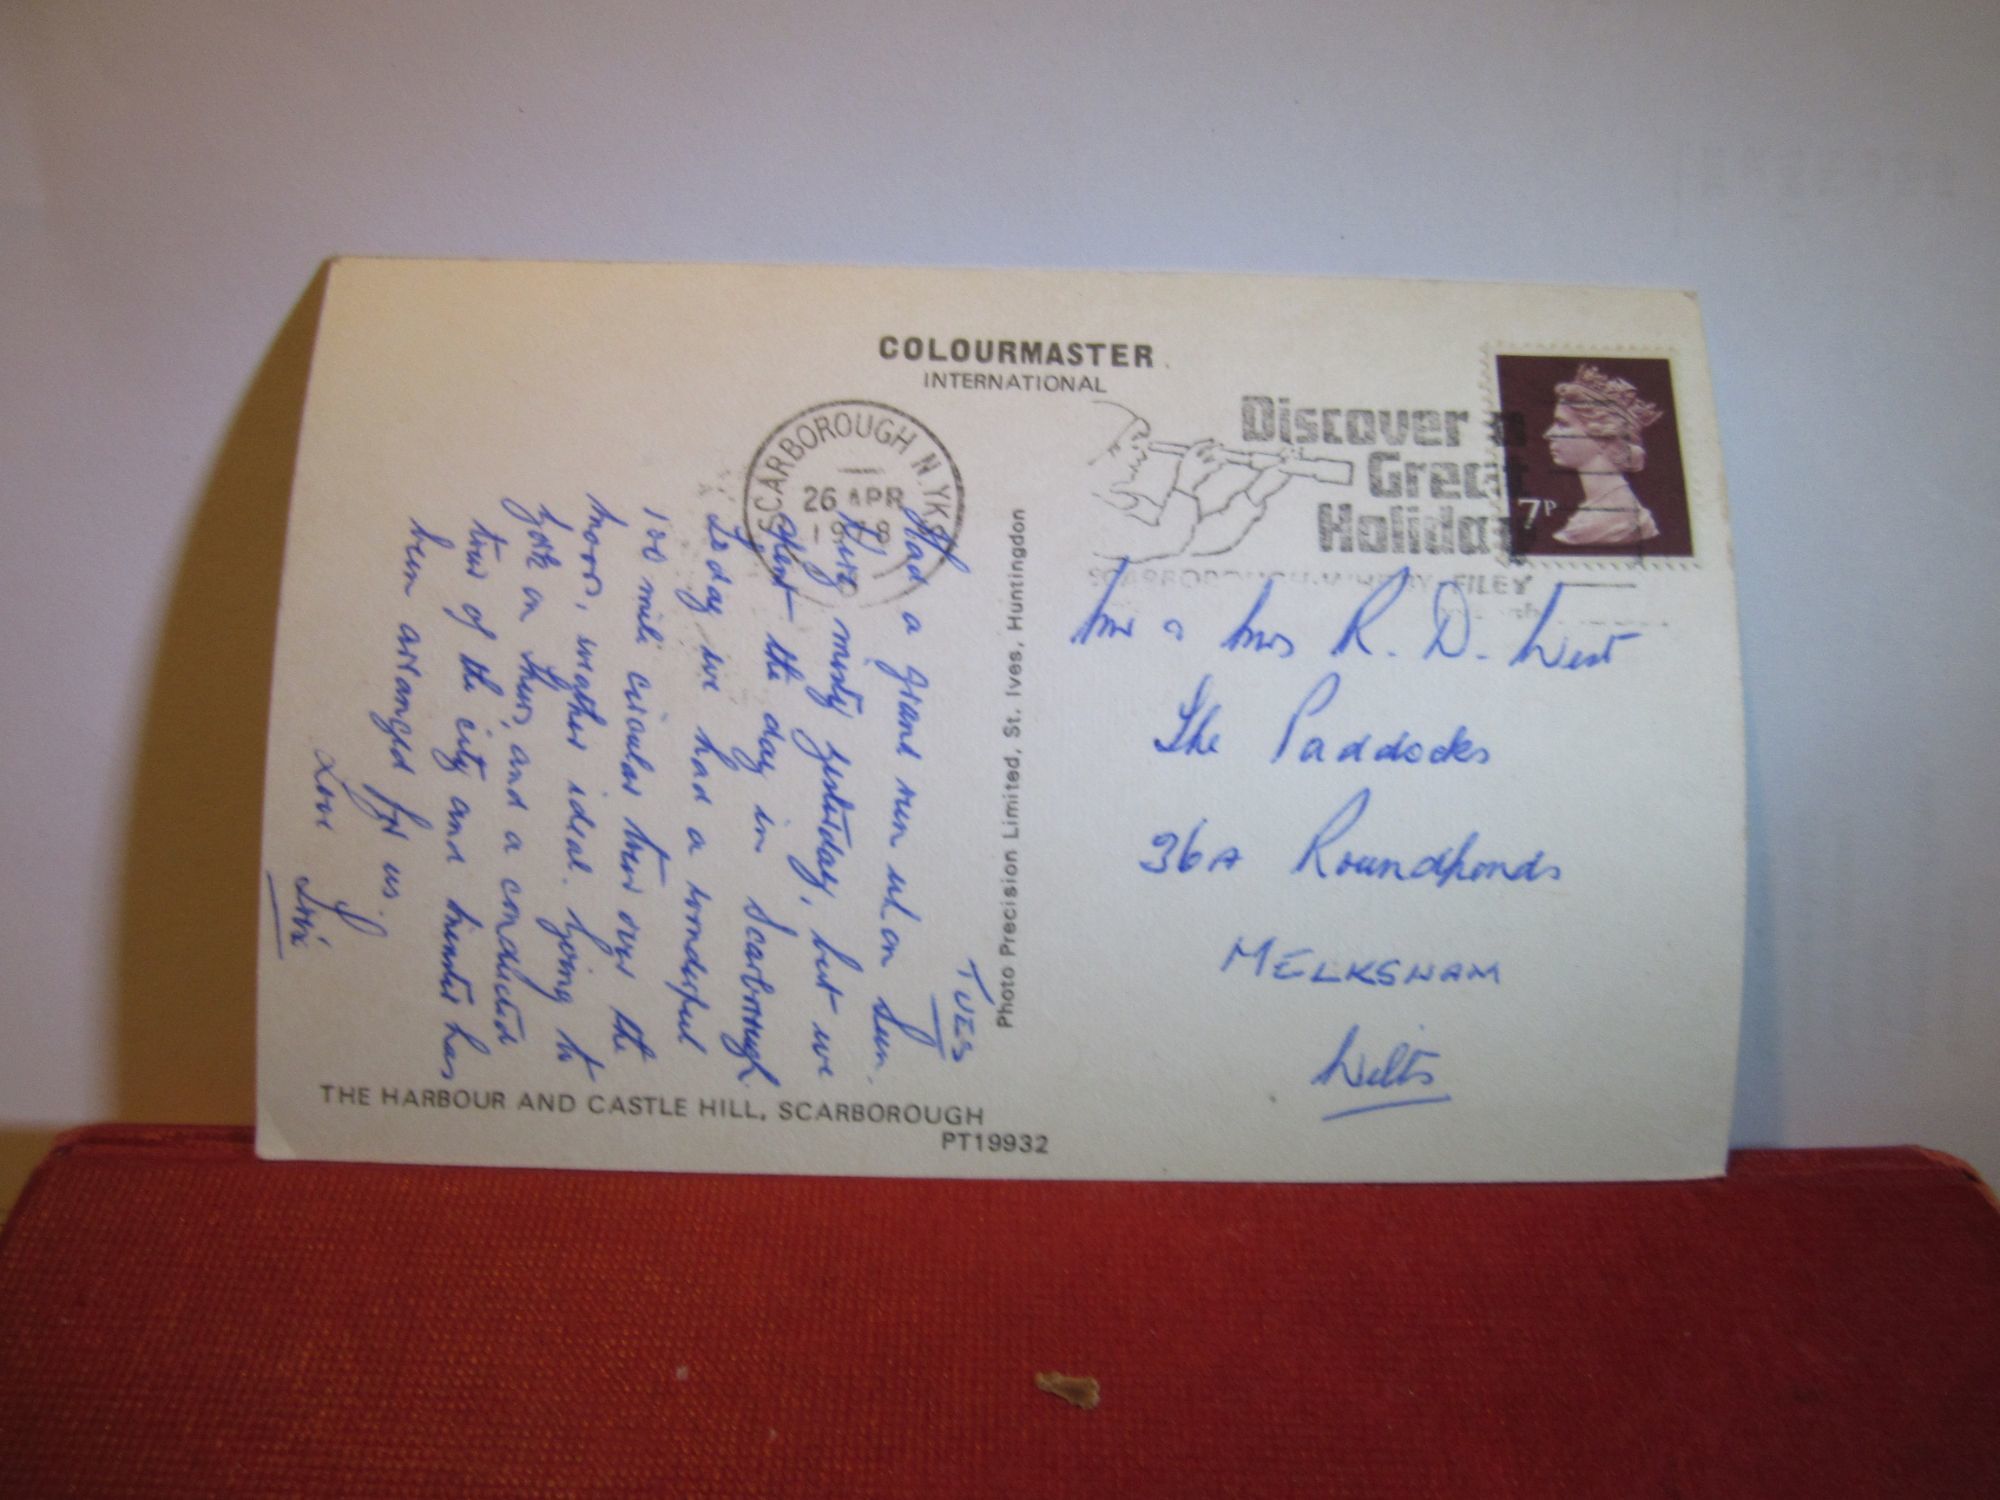 COLOURMASTER
INTERNATIONAL
SCARBOROUGH N. YKS
26 APR
1978
Discover a
Great
Holiday
FILEY
7P
TUES
Had a grand run up on Sun.
misty yesterday, but we
spent the day in Scarborough.
Today we had a wonderful
100 mile circular tour over the
moors, weather ideal. Going to
York on Thurs, and a conducted
tour of the city and minster has
been arranged for us.
Love
Photo Precision Limited, St. Ives, Huntingdon
Mr & Mrs R. D. West
The Paddocks
36A Roundponds
MELKSHAM
Wilts
THE HARBOUR AND CASTLE HILL, SCARBOROUGH
PT19932